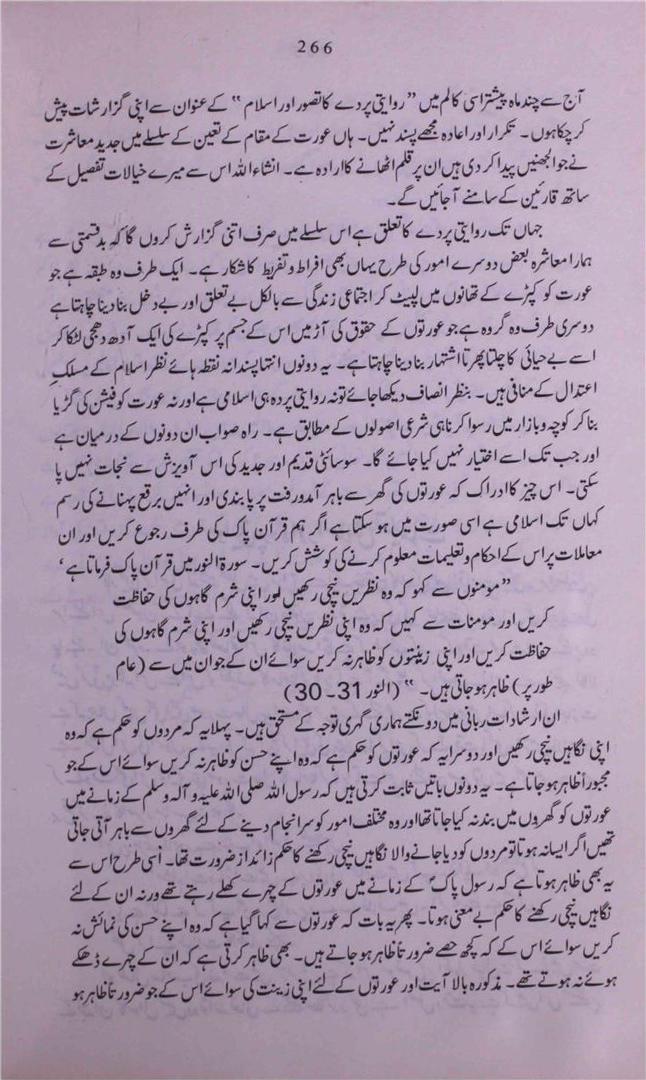 266
آج سے چند ماہ پیشتر اسی کالم میں ”روایتی پردے کا تصور اور اسلام“ کے عنوان سے اپنی گزارشات پیش
کر چکا ہوں۔ تکرار اور اعادہ مجھے پسند نہیں۔ ہاں عورت کے مقام کے تعین کے سلسلے میں جدید معاشرت
نے جو الجھنیں پیدا کر دی ہیں ان پر قلم اٹھانے کا ارادہ ہے۔ انشاء اللہ اس سے میرے خیالات تفصیل کے
ساتھ قارئین کے سامنے آ جائیں گے۔
جہاں تک روایتی پردے کا تعلق ہے اس سلسلے میں صرف اتنی گزارش کروں گا کہ بد قسمتی سے
ہمارا معاشرہ بعض دوسرے امور کی طرح یہاں بھی افراط و تفریط کا شکار ہے۔ ایک طرف وہ طبقہ ہے جو
عورت کو کپڑے کے تھانوں میں لپیٹ کر اجتماعی زندگی سے بالکل بے تعلق اور بے دخل بنا دینا چاہتا ہے
دوسری طرف وہ گروہ ہے جو عورتوں کے حقوق کی آڑ میں اس کے جسم پر کپڑے کی ایک آدھ دھجی لٹکا کر
اسے بے حیائی کا چلتا پھرتا اشتہار بنا دینا چاہتا ہے۔ یہ دونوں انتہا پسندانہ نقطہ ہائے نظر اسلام کے مسلک
اعتدال کے منافی ہیں۔ بنظر انصاف دیکھا جائے تو نہ روایتی پردہ ہی اسلامی ہے اور نہ عورت کو فیشن کی گڑیا
بنا کر کوچہ و بازار میں رسوا کرنا ہی شرعی اصولوں کے مطابق ہے۔ راہ صواب ان دونوں کے درمیان ہے
اور جب تک اسے اختیار نہیں کیا جائے گا۔ سوسائٹی قدیم اور جدید کی اس آویزش سے نجات نہیں پا
سکتی۔ اس چیز کا ادراک کہ عورتوں کی گھر سے باہر آمدورفت پر پابندی اور انہیں برقع پہنانے کی رسم
کہاں تک اسلامی ہے اسی صورت میں ہو سکتا ہے اگر ہم قرآن پاک کی طرف رجوع کریں اور ان
معاملات پر اس کے احکام و تعلیمات معلوم کرنے کی کوشش کریں۔ سورۃ النور میں قرآن پاک فرماتا ہے ‘
”مومنوں سے کہو کہ وہ نظریں نیچی رکھیں اور اپنی شرم گاہوں کی حفاظت
کریں اور مومنات سے کہیں کہ وہ اپنی نظریں نیچی رکھیں اور اپنی شرم گاہوں کی
حفاظت کریں اور اپنی زینتوں کو ظاہر نہ کریں سوائے ان کے جو ان میں سے (عام
طور پر) ظاہر ہو جاتی ہیں۔“ (النور 31۔30)
ان ارشادات ربانی میں دو نکتے ہماری گہری توجہ کے مستحق ہیں۔ پہلا یہ کہ مردوں کو حکم ہے کہ وہ
اپنی نگاہیں نیچی رکھیں اور دوسرا یہ کہ عورتوں کو حکم ہے کہ وہ اپنے حسن کو ظاہر نہ کریں سوائے اس کے جو
مجبوراً ظاہر ہو جاتا ہے۔ یہ دونوں باتیں ثابت کرتی ہیں کہ رسول اللہ صلی اللہ علیہ و آلہ وسلم کے زمانے میں
عورتوں کو گھروں میں بند نہ کیا جاتا تھا اور وہ مختلف امور کو سرانجام دینے کے لئے گھروں سے باہر آتی جاتی
تھیں اگر ایسا نہ ہوتا تو مردوں کو دیا جانے والا نگاہیں نیچی رکھنے کا حکم زائد از ضرورت تھا۔ اسی طرح اس سے
یہ بھی ظاہر ہوتا ہے کہ رسول پاکؐ کے زمانے میں عورتوں کے چہرے کھلے رہتے تھے ورنہ ان کے لئے
نگاہیں نیچی رکھنے کا حکم بے معنی ہوتا۔ پھر یہ بات کہ عورتوں سے کہا گیا ہے کہ وہ اپنے حسن کی نمائش نہ
کریں سوائے اس کے کہ کچھ حصے ضرورتاً ظاہر ہو جاتے ہیں۔ بھی ظاہر کرتی ہے کہ ان کے چہرے ڈھکے
ہوئے نہ ہوتے تھے۔ مذکورہ بالا آیت اور عورتوں کے لئے اپنی زینت کی سوائے اس کے جو ضرورتاً ظاہر ہو